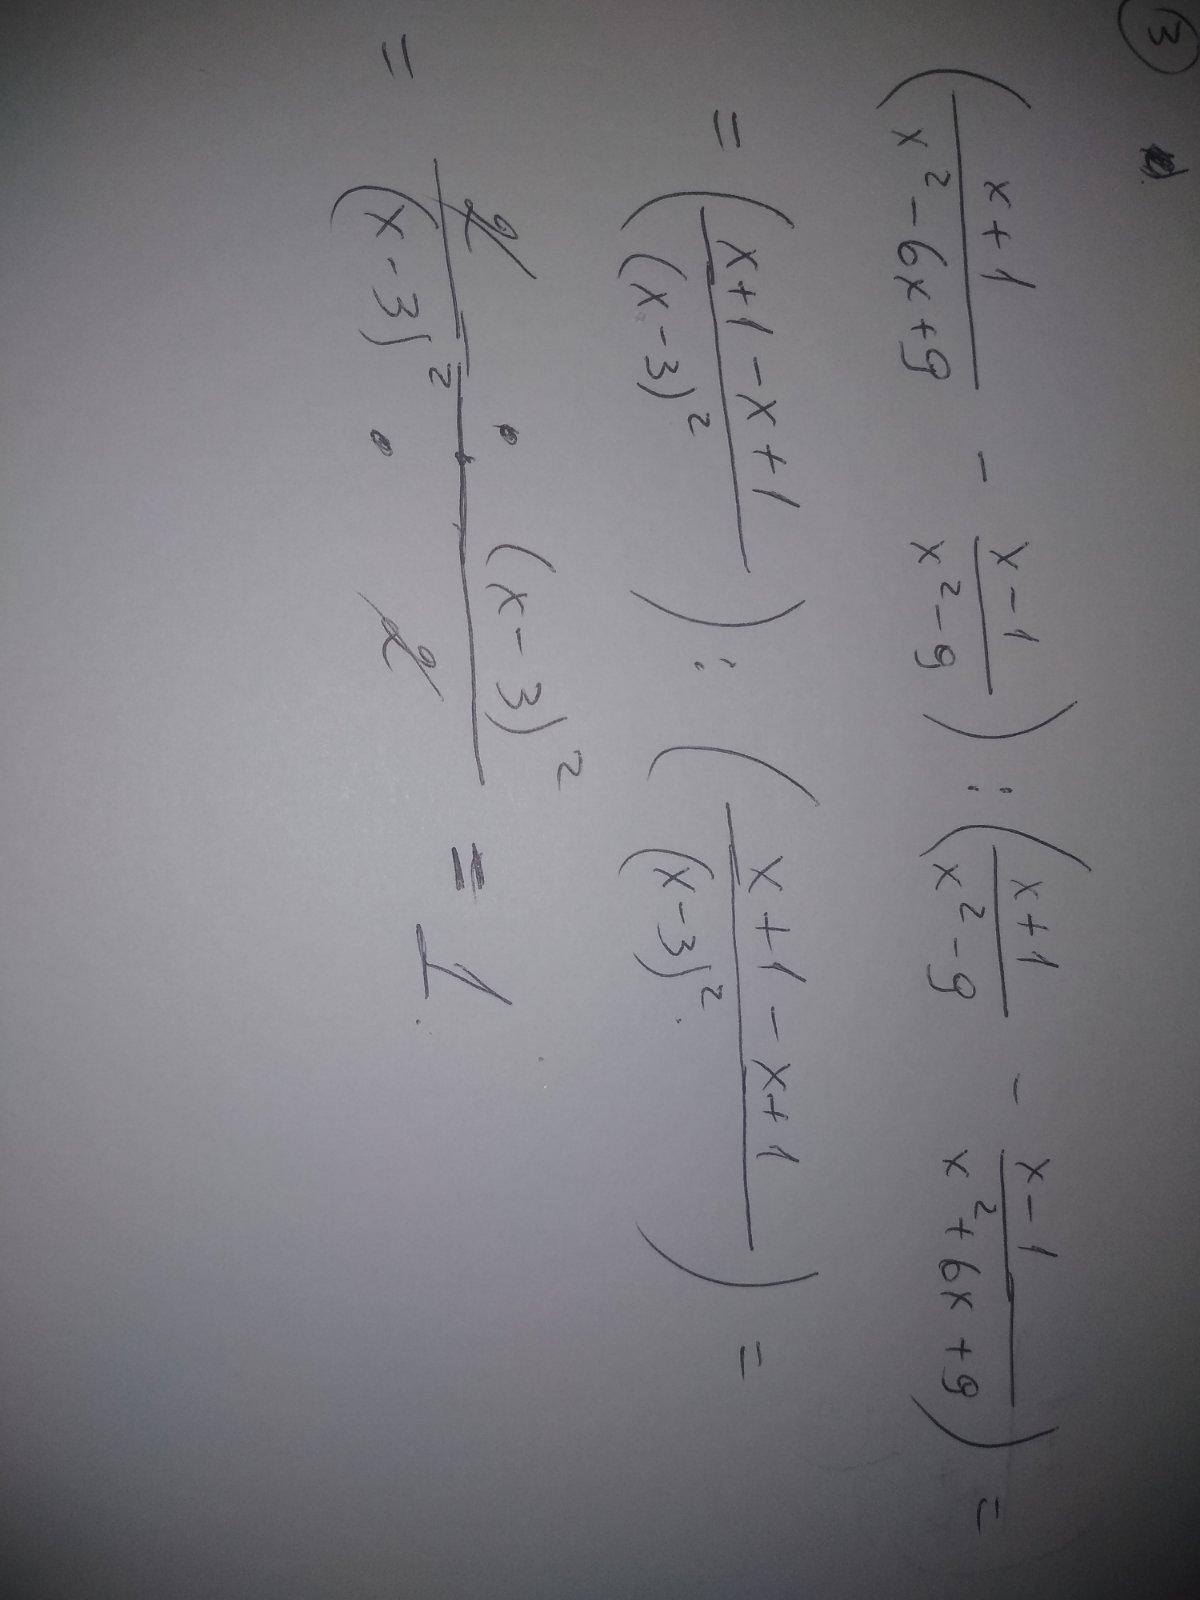 ③
(x+1 / x² - 6x + 9 - x-1 / x² - 9) : (x+1 / x² - 9 - x-1 / x² + 6x + 9) =
= (x+1 - x+1 / (x - 3)²) : (x+1 - x+1 / (x - 3)²) =
= 2 · (x - 3)² / (x - 3)² · 2 = 1